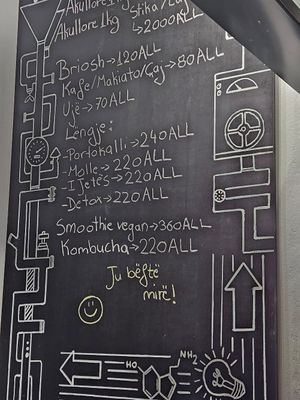 Akullore 1kg
→2000ALL
Briosh→120ALL
Kafe/Makiato/Çaj→80ALL
Ujë→70ALL
Lëngje:
-Portokalli→240ALL
-Molle→220ALL
-I Jetës→220ALL
-Detox→220ALL
Smoothie vegan→360ALL
Kombucha→220ALL
Ju bëftë
mirë!
HO
NH2